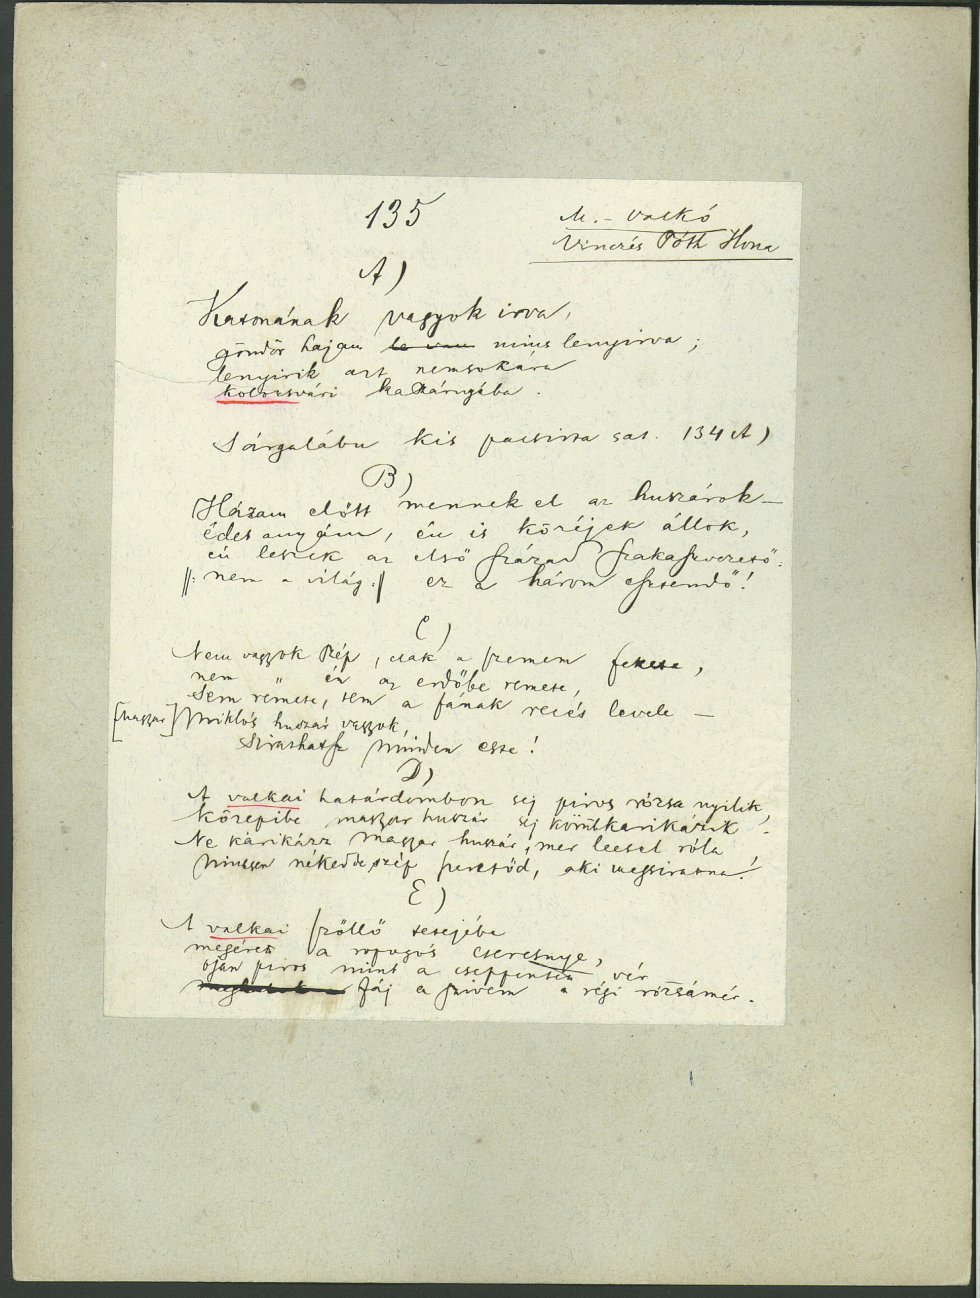 135
M. - Valkó
Vinczés Tóth Ilona
A)
Katonának vagyok irva,
göndör hajam le van nincs lenyirva;
lenyirik azt nemsokára
kolozsvári kaszárnyába.
Sárgalábu kis pacsirta sat. 134 A)
B)
Házam előtt mennek el az huszárok –
édes anyám, én is közéjek állok,
én leszek az első század szakaszvezető.
||: nem a világ :|| ez a három esztendő!
C)
Nem vagyok szép, csak a szemem fekete,
nem " én az erdőbe remete,
Sem remete, sem a fának recés levele –
[magyar] Miklós huszár vagyok,
Sirathatsz minden este!
D)
A valkai határdombon sej piros rózsa nyilik,
Közepibe magyar huszár sej körülkarikázik.
Ne karikázz magyar huszár, mer leesel róla
Ninssen nékedde szép szeretőd, aki megsiratna!
E)
A valkai szőllő tetejébe
megéret a ropogós cseresnye,
ojan piros mint a cseppentett vér
fáj a szivem a régi rózsámér.